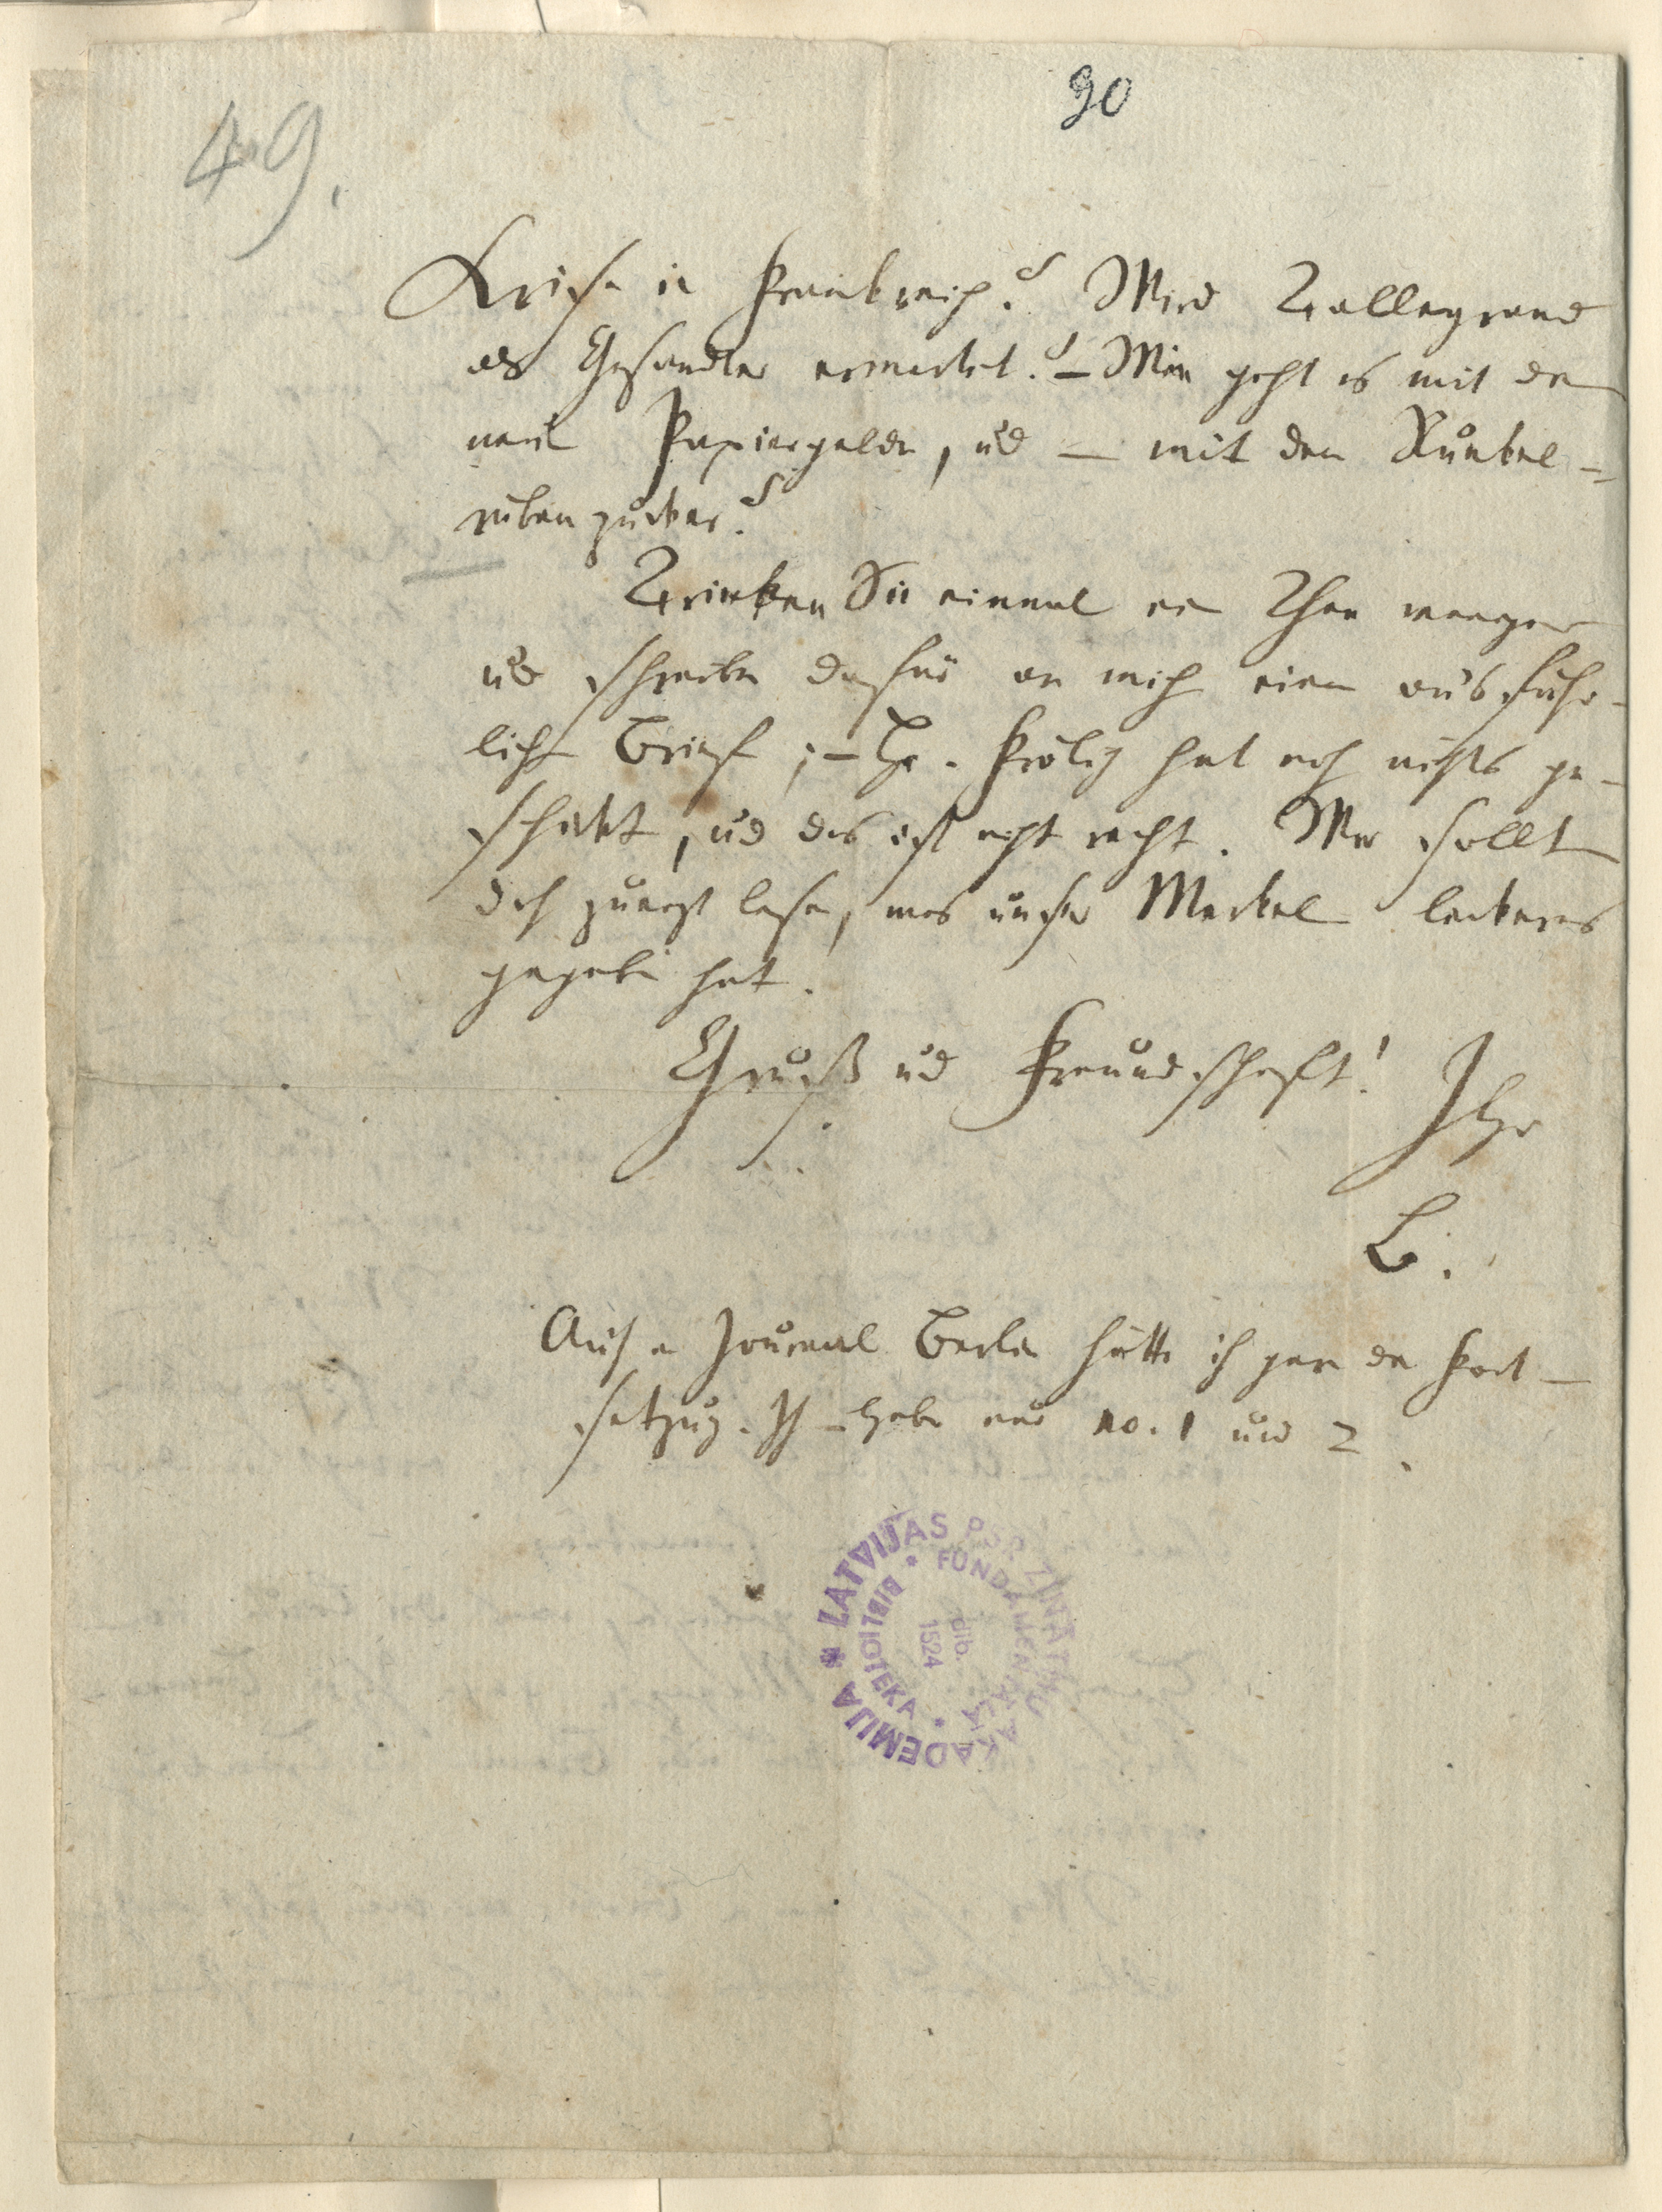 90
49.
Krise in Frankreich? Wird Tallegrand
als Gesandter erwartet? – Wie geht es mit den
neuen Papiergelde, und – mit dem Runkel-
rüben zucker?
Trinken Sie einmal ein Thee weniger
und schreiben dafür an mich einen ausführ-
lichen Brief; – Hr. Frölich hat noch nichts ge-
schickt, und das ist nicht recht. Wir sollten
doch zuerst lesen, was unser Merkel leckeres
gegeben hat.
Gruß und Freundschaft! Ihr
B.
Auch Journal Berlin hätte ich gern die Fort-
setzung. Ich habe nur no. 1 und 2.
* LATVIJAS PSR ZINĀTŅU AKADEMIJA
FUNDAMENTĀLĀ * BIBLIOTEKA *
dib.
1524